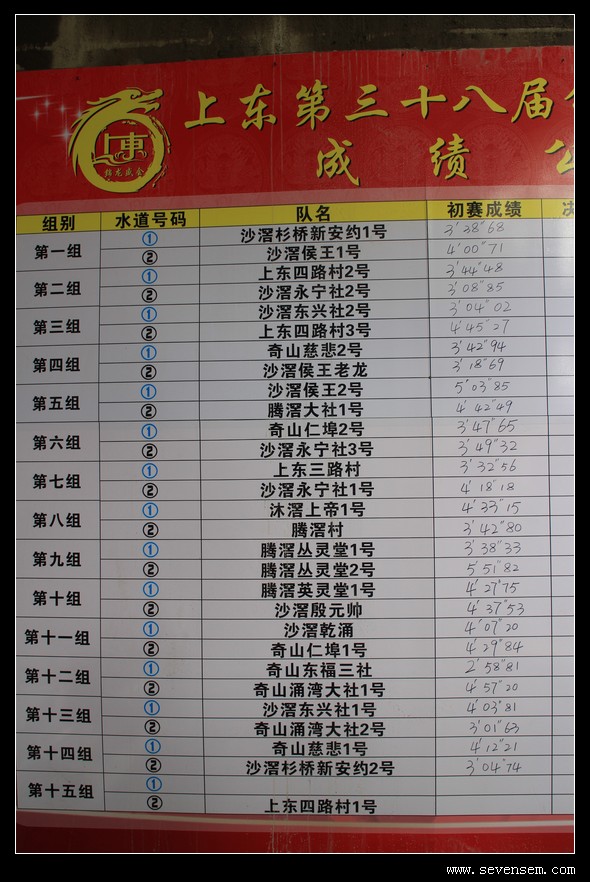 上东第三十八届
成绩公
上東
锦龙盛会
组别 水道号码 队名 初赛成绩 决
第一组 ① 沙滘杉桥新安约1号 3'38"68
② 沙滘侯王1号 4'00"71
第二组 ① 上东四路村2号 3'44"48
② 沙滘永宁社2号 3'08"85
第三组 ① 沙滘东兴社2号 3'04"02
② 上东四路村3号 4'45"27
第四组 ① 奇山慈悲2号 3'42"94
② 沙滘侯王老龙 3'18"69
第五组 ① 沙滘侯王2号 5'03"85
② 腾滘大社1号 4'42"49
第六组 ① 奇山仁埠2号 3'47"65
② 沙滘永宁社3号 3'49"32
第七组 ① 上东三路村 3'32"56
② 沙滘永宁社1号 4'18"18
第八组 ① 沐滘上帝1号 4'33"15
② 腾滘村 3'42"80
第九组 ① 腾滘丛灵堂1号 3'38"33
② 腾滘丛灵堂2号 5'51"82
第十组 ① 腾滘英灵堂1号 4'27"75
② 沙滘殷元帅 4'37"53
第十一组 ① 沙滘乾涌 4'07"20
② 奇山仁埠1号 4'29"84
第十二组 ① 奇山东福三社 2'58"81
② 奇山涌湾大社1号 4'57"20
第十三组 ① 沙滘东兴社1号 4'03"81
② 奇山涌湾大社2号 3'01"63
第十四组 ① 奇山慈悲1号 4'12"21
② 沙滘杉桥新安约2号 3'04"74
第十五组 ①
② 上东四路村1号
www.sevensem.com